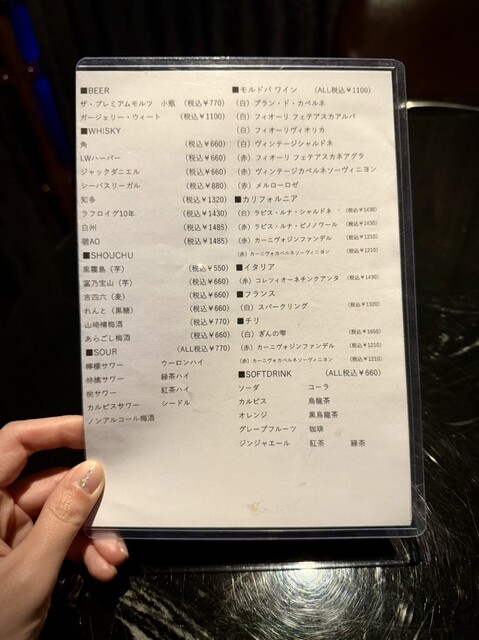 ■BEER
ザ・プレミアムモルツ 小瓶 (税込¥770)
ガージェリー・ウィート (税込¥1100)
■WHISKY
角 (税込¥660)
I.Wハーパー (税込¥660)
ジャックダニエル (税込¥660)
シーバスリーガル (税込¥880)
知多 (税込¥1320)
ラフロイグ10年 (税込¥1430)
白州 (税込¥1485)
碧AO (税込¥1485)
■SHOUCHU
黒霧島(芋) (税込¥550)
富乃宝山(芋) (税込¥660)
吉四六(麦) (税込¥660)
れんと(黒糖) (税込¥660)
山崎樽梅酒 (税込¥770)
あらごし梅酒 (税込¥660)
■SOUR (ALL税込¥770)
檸檬サワー ウーロンハイ
林檎サワー 緑茶ハイ
桃サワー 紅茶ハイ
カルピスサワー シードル
ノンアルコール梅酒
■モルドバ ワイン (ALL税込¥1100)
(白) ブラン・ド・カベルネ
(白) フィオーリ フェテアスカアルバ
(白) フィオーリヴィオリカ
(白) ヴィンテージシャルドネ
(赤) フィオーリ フェテアスカネアグラ
(赤) ヴィンテージカベルネソーヴィニヨン
(赤) メルローロゼ
■カリフォルニア
(白) ラピス・ルナ・シャルドネ (税込¥1430)
(赤) ラピス・ルナ・ピノノワール (税込¥1430)
(赤) カーニヴォジンファンデル (税込¥1210)
(赤) カーニヴォカベルネソーヴィニヨン (税込¥1210)
■イタリア
(赤) コレフィオーネチンクアンタ (税込¥1430)
■フランス
(白) スパークリング (税込¥1320)
■チリ
(白) ぎんの雫 (税込¥1650)
(赤) カーニヴォジンファンデル (税込¥1210)
(赤) カーニヴォカベルネソーヴィニヨン (税込¥1210)
■SOFTDRINK (ALL税込¥660)
ソーダ コーラ
カルピス 烏龍茶
オレンジ 黒烏龍茶
グレープフルーツ 珈琲
ジンジャエール 紅茶 緑茶